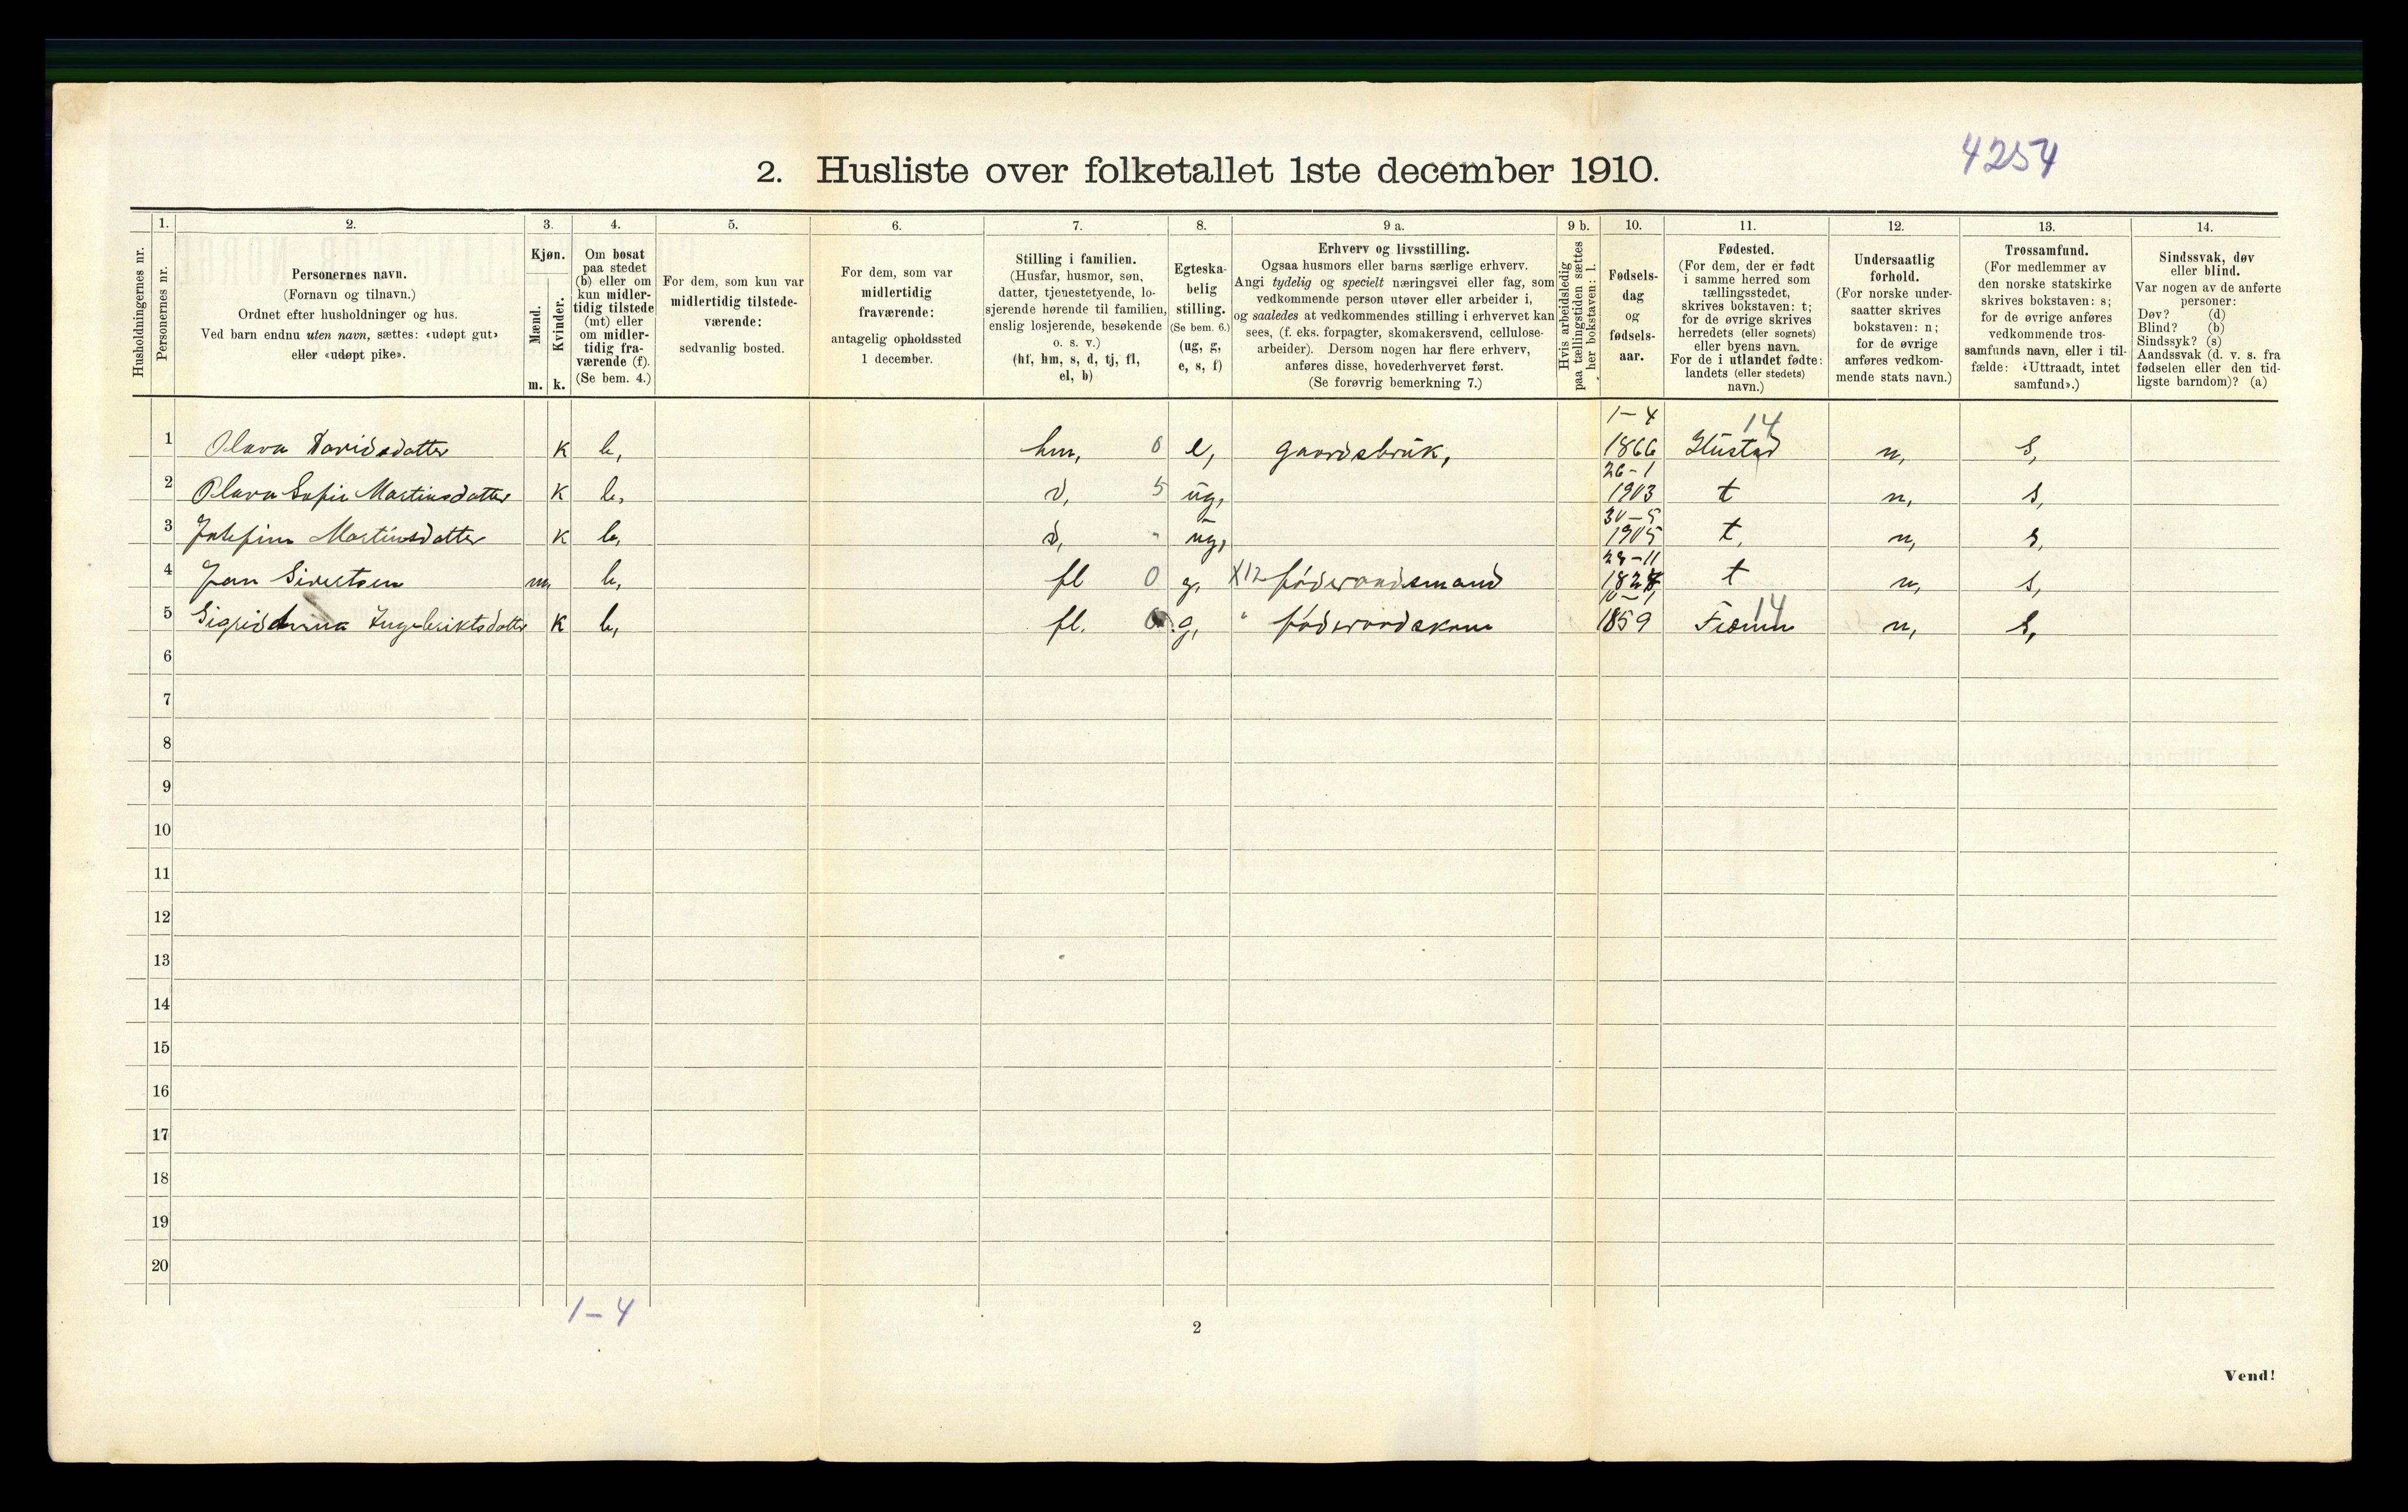 4254
2. Husliste over folketallet 1ste december 1910.
Husholdningernes nr.
1.
Personernes nr.
2.
Personernes navn.
(Fornavn og tilnavn.)
Ordnet efter husholdninger og hus.
Ved barn endnu uten navn, sættes: «udøpt gut»
eller «udøpt pike».
3.
Kjøn.
Mænd.
Kvinder.
m. k.
4.
Om bosat
paa stedet
(b) eller om
kun midler-
tidig tilstede
(mt) eller
om midler-
tidig fra-
værende (f).
(Se bem. 4.)
5.
For dem, som kun var
midlertidig tilstede-
værende:
sedvanlig bosted.
6.
For dem, som var
midlertidig
fraværende:
antagelig opholdssted
1 december.
7.
Stilling i familien.
(Husfar, husmor, søn,
datter, tjenestetyende, lo-
sjerende hørende til familien,
enslig losjerende, besøkende
o. s. v.)
(hf, hm, s, d, tj, fl,
el, b)
8.
Egteska-
belig
stilling.
(Se bem. 6.)
(ug, g,
e, s, f)
9 a.
Erhverv og livsstilling.
Ogsaa husmors eller barns særlige erhverv.
Angi tydelig og specielt næringsvei eller fag, som
vedkommende person utøver eller arbeider i,
og saaledes at vedkommendes stilling i erhvervet kan
sees, (f. eks. forpagter, skomakersvend, cellulose-
arbeider). Dersom nogen har flere erhverv,
anføres disse, hovederhvervet først.
(Se forøvrig bemerkning 7.)
9 b.
Hvis arbeidsledig
paa tællingstiden sættes
her bokstaven: l.
10.
Fødsels-
dag
og
fødsels-
aar.
11.
Fødested.
(For dem, der er født
i samme herred som
tællingsstedet,
skrives bokstaven: t;
for de øvrige skrives
herredets (eller sognets)
eller byens navn.
For de i utlandet fødte:
landets (eller stedets)
navn.)
12.
Undersaatlig
forhold.
(For norske under-
saatter skrives
bokstaven: n;
for de øvrige
anføres vedkom-
mende stats navn.)
13.
Trossamfund.
(For medlemmer av
den norske statskirke
skrives bokstaven: s;
for de øvrige anføres
vedkommende tros-
samfunds navn, eller i til-
fælde: «Uttraadt, intet
samfund».)
14.
Sindssvak, døv
eller blind.
Var nogen av de anførte
personer:
Døv? (d)
Blind? (b)
Sindssyk? (s)
Aandssvak (d. v. s. fra
fødselen eller den tid-
ligste barndom)? (a)
1-4 14
1 Olava Davidsdatter k b, hm, 0 e, gaardsbruk, 1866 Hustad n, s,
26-1
2 Olava Sofie Martinsdatter k b, d, 5 ug, 1903 t n, s,
30-5
3 Josefine Martinsdatter k b, d, " ug, 1905 t, n, s,
4 Jon Sivertsen m, b, fl 0 g, X12 føderaadsmand t n, s,
14
5 Ingebriktsdatter k b, fl. g, " føderaadskone 1859 n, s,
6
7
8
9
10
11
12
13
14
15
16
17
18
19
20
1-4
2
Vend!